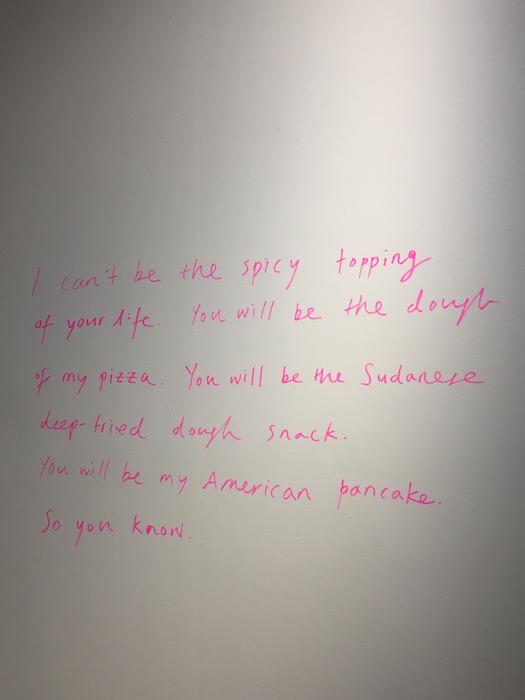 I can't be the spicy topping
of your life. You will be the dough
of my pizza. You will be the Sudanese
deep-fried dough snack.
You will be my American pancake.
So you know.